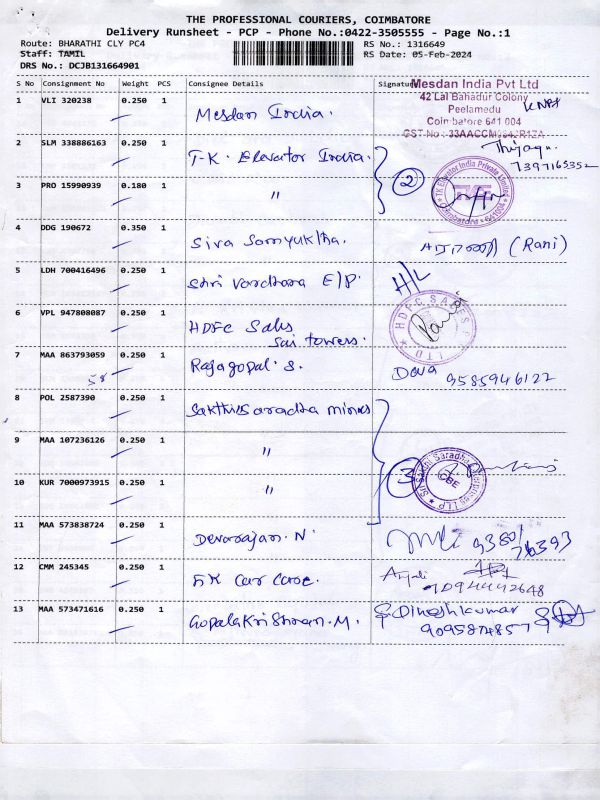 THE PROFESSIONAL COURIERS, COIMBATORE
Delivery Runsheet - PCP - Phone No.:0422-3505555 - Page No.:1
Route: BHARATHI CLY PC4 RS No.: 1316649
Staff: TAMIL RS Date: 05-Feb-2024
DRS No.: DCJB131664901
S No Consignment No Weight PCS Consignee Details Signature
Mesdan India Pvt Ltd
42 Lal Bahadur Colony
Peelamedu
Coimbatore 641 004
1 VLI 320238 0.250 1 Mesdan India.
2 SLM 338886163 0.250 1 T-K. Elevator India. Thiyagu
7397165352
3 PRO 15990939 0.180 1 " 2 TK Elevator India Private Limited Coimbatore 641004
4 DDG 190672 0.350 1 Siva Samyuktha. (Rani)
5 LDH 700416496 0.250 1 Shri Vardhana E/P. H/L
6 VPL 947808087 0.250 1 HDFC Sales HDFC SALES LTD
Sai towers.
7 MAA 863793059 0.250 1 Rajagopal. S. Deva 9585946122
58
8 POL 2587390 0.250 1 Sakthisaradha mines
9 MAA 107236126 0.250 1 "
10 KUR 7000973915 0.250 1 " 3 CBE
11 MAA 573838724 0.250 1 Devarajan. N.
12 CMM 245345 0.250 1 FK Car Care. Anjali
13 MAA 573471616 0.250 1 Gopalakrishnan. M. Dineshkumar